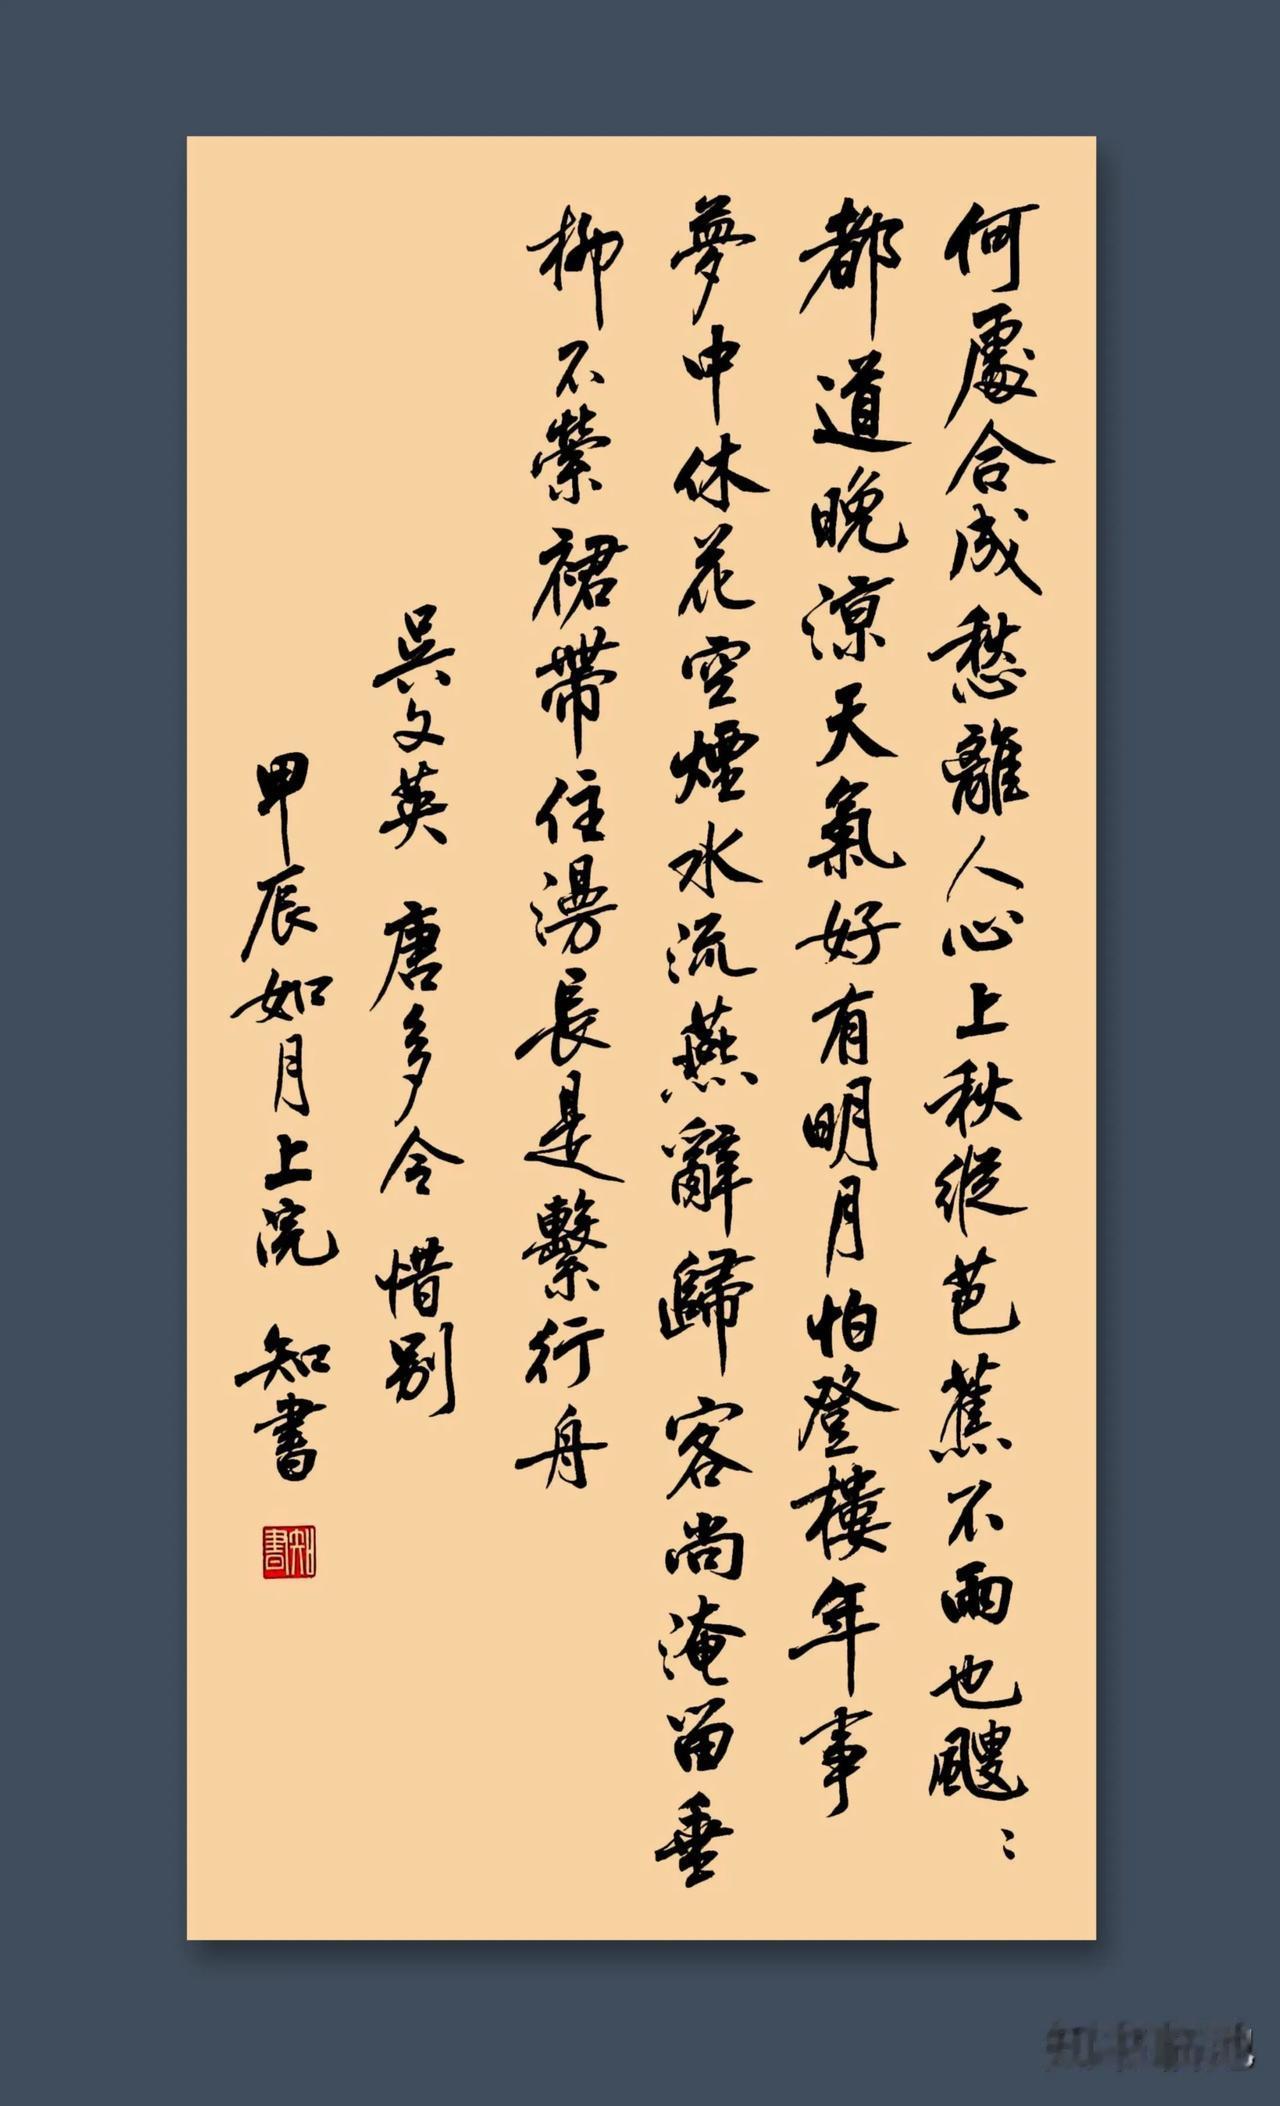 何處合成愁離人心上秋縱芭蕉不雨也颼〻
都道晚涼天氣好有明月怕登樓年事
夢中休花空煙水流燕辭歸客尚淹留垂
柳不縈裙帶住漫長是繫行舟
吳文英 唐多令 惜別
甲辰如月上浣 知書
知書
知书临池